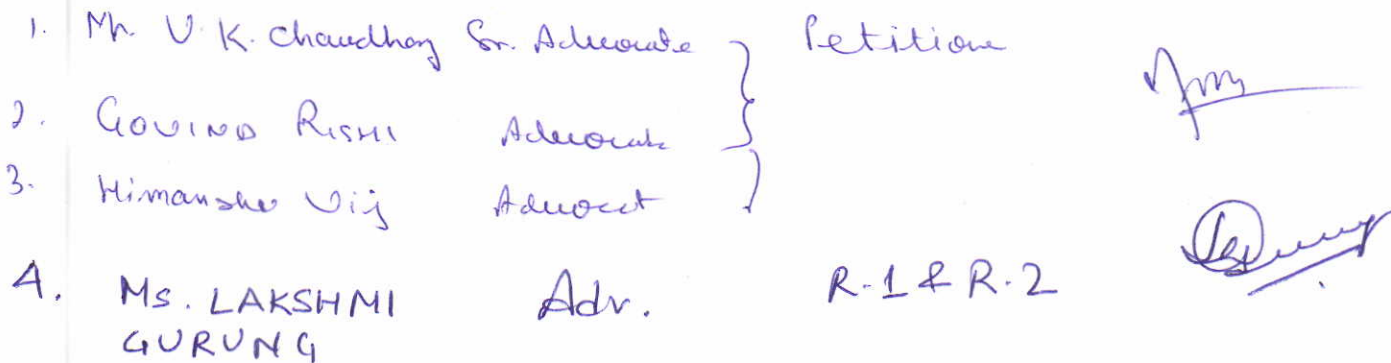 1. Mr. U.K. Chaudhary Sr. Advocate Petitioner
2. GOVIND RISHI Advocate
3. Himanshu Vij Advocate
4. Ms. LAKSHMI Adv. R-1 & R-2
GURUNG